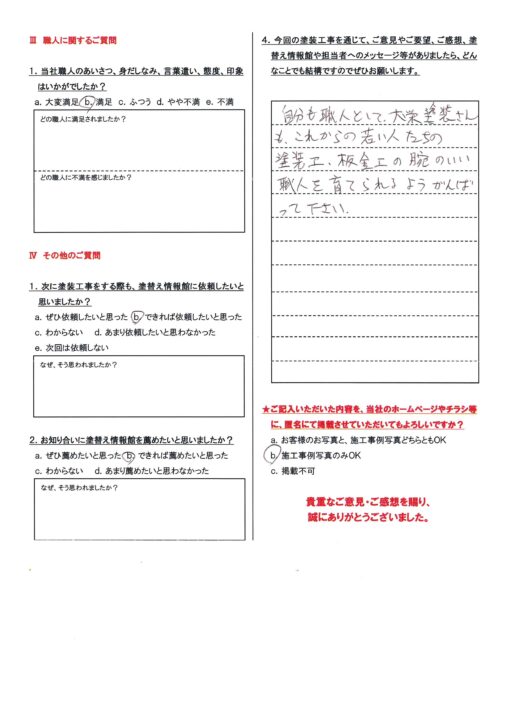 Ⅲ 職人に関するご質問
1. 当社職人のあいさつ、身だしなみ、言葉遣い、態度、印象
はいかがでしたか?
a. 大変満足 b. 満足 c. ふつう d. やや不満 e. 不満
どの職人に満足されましたか?
どの職人に不満を感じましたか?
Ⅳ その他のご質問
1. 次に塗装工事をする際も、塗替え情報館に依頼したいと
思いましたか?
a. ぜひ依頼したいと思った b. できれば依頼したいと思った
c. わからない d. あまり依頼したいと思わなかった
e. 次回は依頼しない
なぜ、そう思われましたか?
2. お知り合いに塗替え情報館を薦めたいと思いましたか?
a. ぜひ薦めたいと思った b. できれば薦めたいと思った
c. わからない d. あまり薦めたいと思わなかった
なぜ、そう思われましたか?
4. 今回の塗装工事を通じて、ご意見やご要望、ご感想、塗
替え情報館や担当者へのメッセージ等がありましたら、どん
なことでも結構ですのでぜひお願いします。
自分も職人として、大栄塗装さん
も、これからの若い人たちの
塗装工、板金工の腕のいい
職人を育てられるようがんば
って下さい.
★ご記入いただいた内容を、当社のホームページやチラシ等
に、匿名にて掲載させていただいてもよろしいですか?
a. お客様のお写真と、施工事例写真どちらともOK
b. 施工事例写真のみOK
c. 掲載不可
貴重なご意見・ご感想を賜り、
誠にありがとうございました。